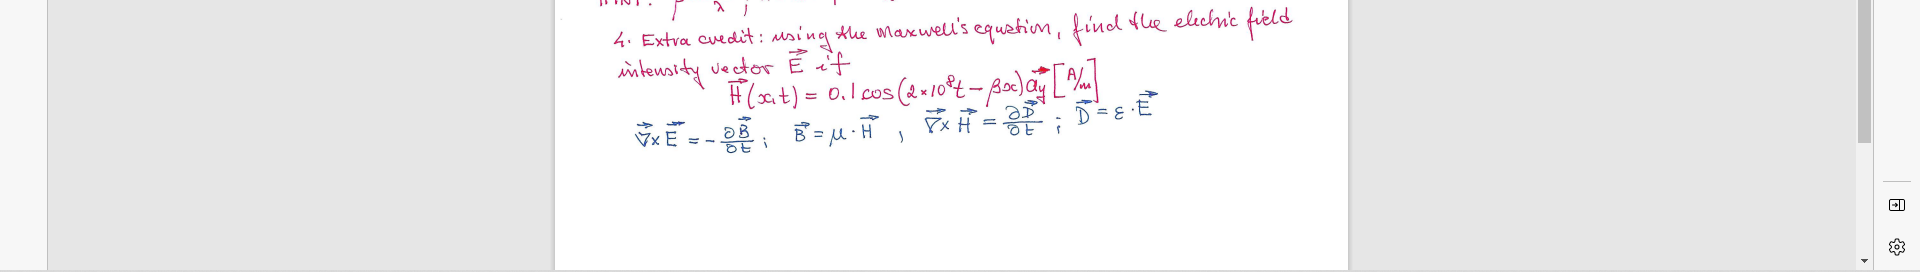 4. Extra credit: using the Maxwell's equation, find the electric field
intensity vector E⃗ if
H⃗(x,t) = 0.1 cos(2×10⁸t − βx) a⃗y [A/m]
∇⃗×E⃗ = −∂B⃗/∂t ; B⃗ = μ · H⃗ , ∇⃗×H⃗ = ∂D⃗/∂t ; D⃗ = ε · E⃗